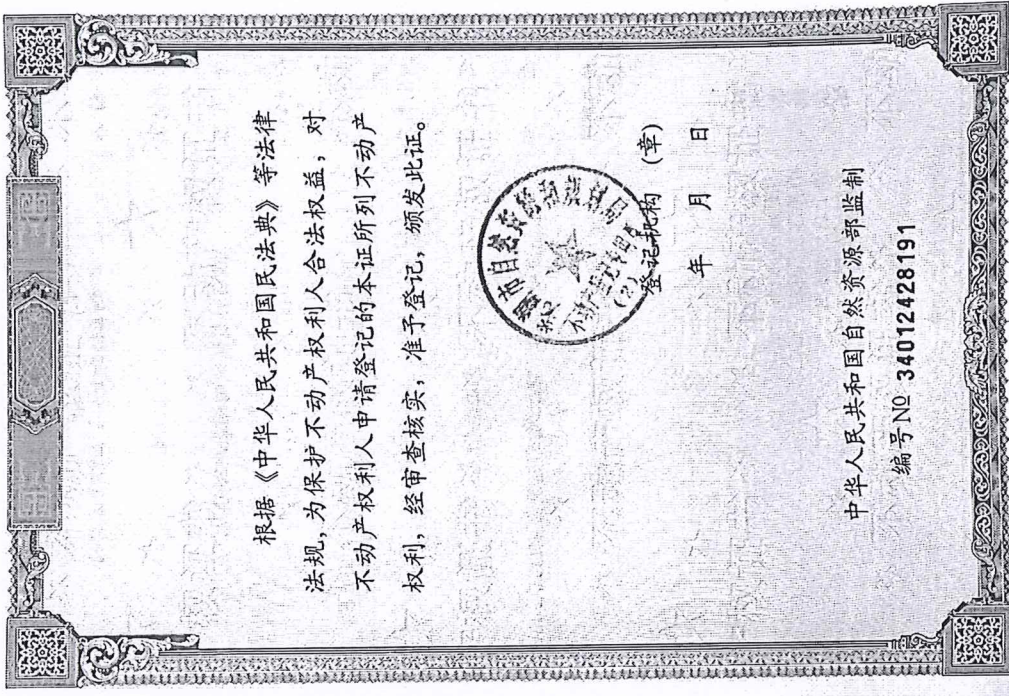 根据《中华人民共和国民法典》等法律
法规，为保护不动产权利人合法权益，对
不动产权利人申请登记的本证所列不动产
权利，经审查核实，准予登记，颁发此证。
市自然资源和规划局
(2)
登记机构 (章)
年 月 日
中华人民共和国自然资源部监制
编号 № 34012428191